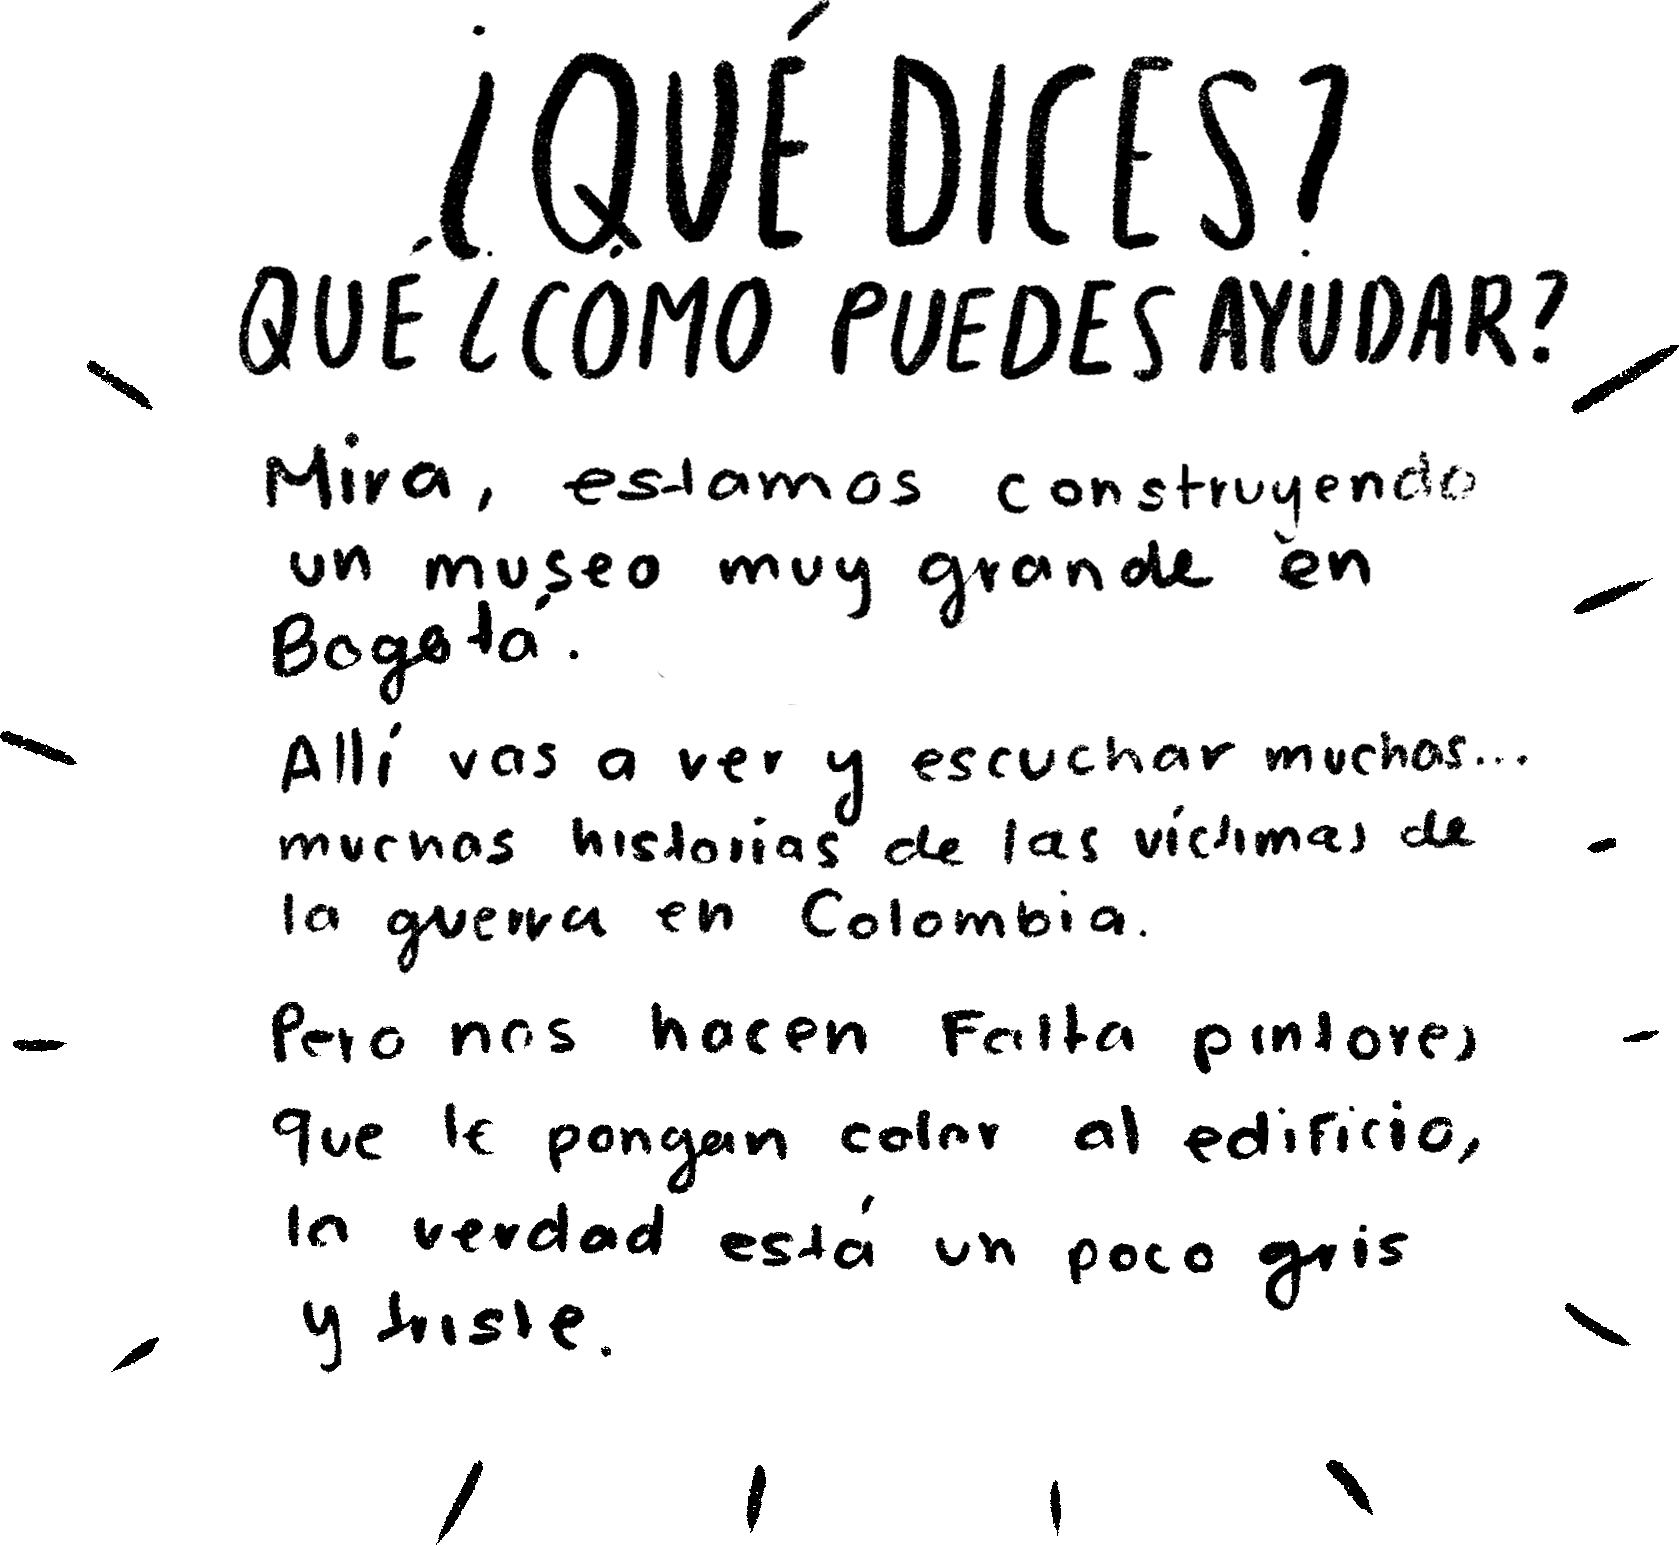 ¿QUÉ DICES?
QUÉ ¿CÓMO PUEDES AYUDAR?
Mira, estamos construyendo
un museo muy grande en
Bogotá.
Allí vas a ver y escuchar muchas...
muchas historias de las víctimas de
la guerra en Colombia.
Pero nos hacen falta pintores
que le pongan color al edificio,
la verdad está un poco gris
y triste.